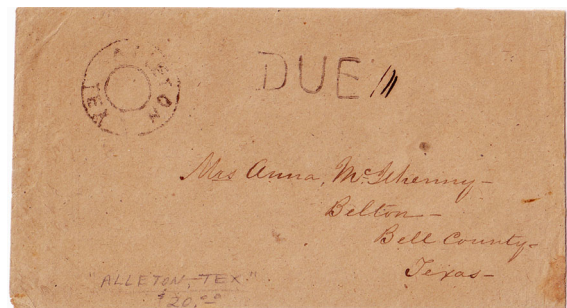 ALLETON TEX
DUE
Mrs Anna, McIlhenny-
Belton-
Bell County-
Texas-
ALLETON, TEX."
$20.00